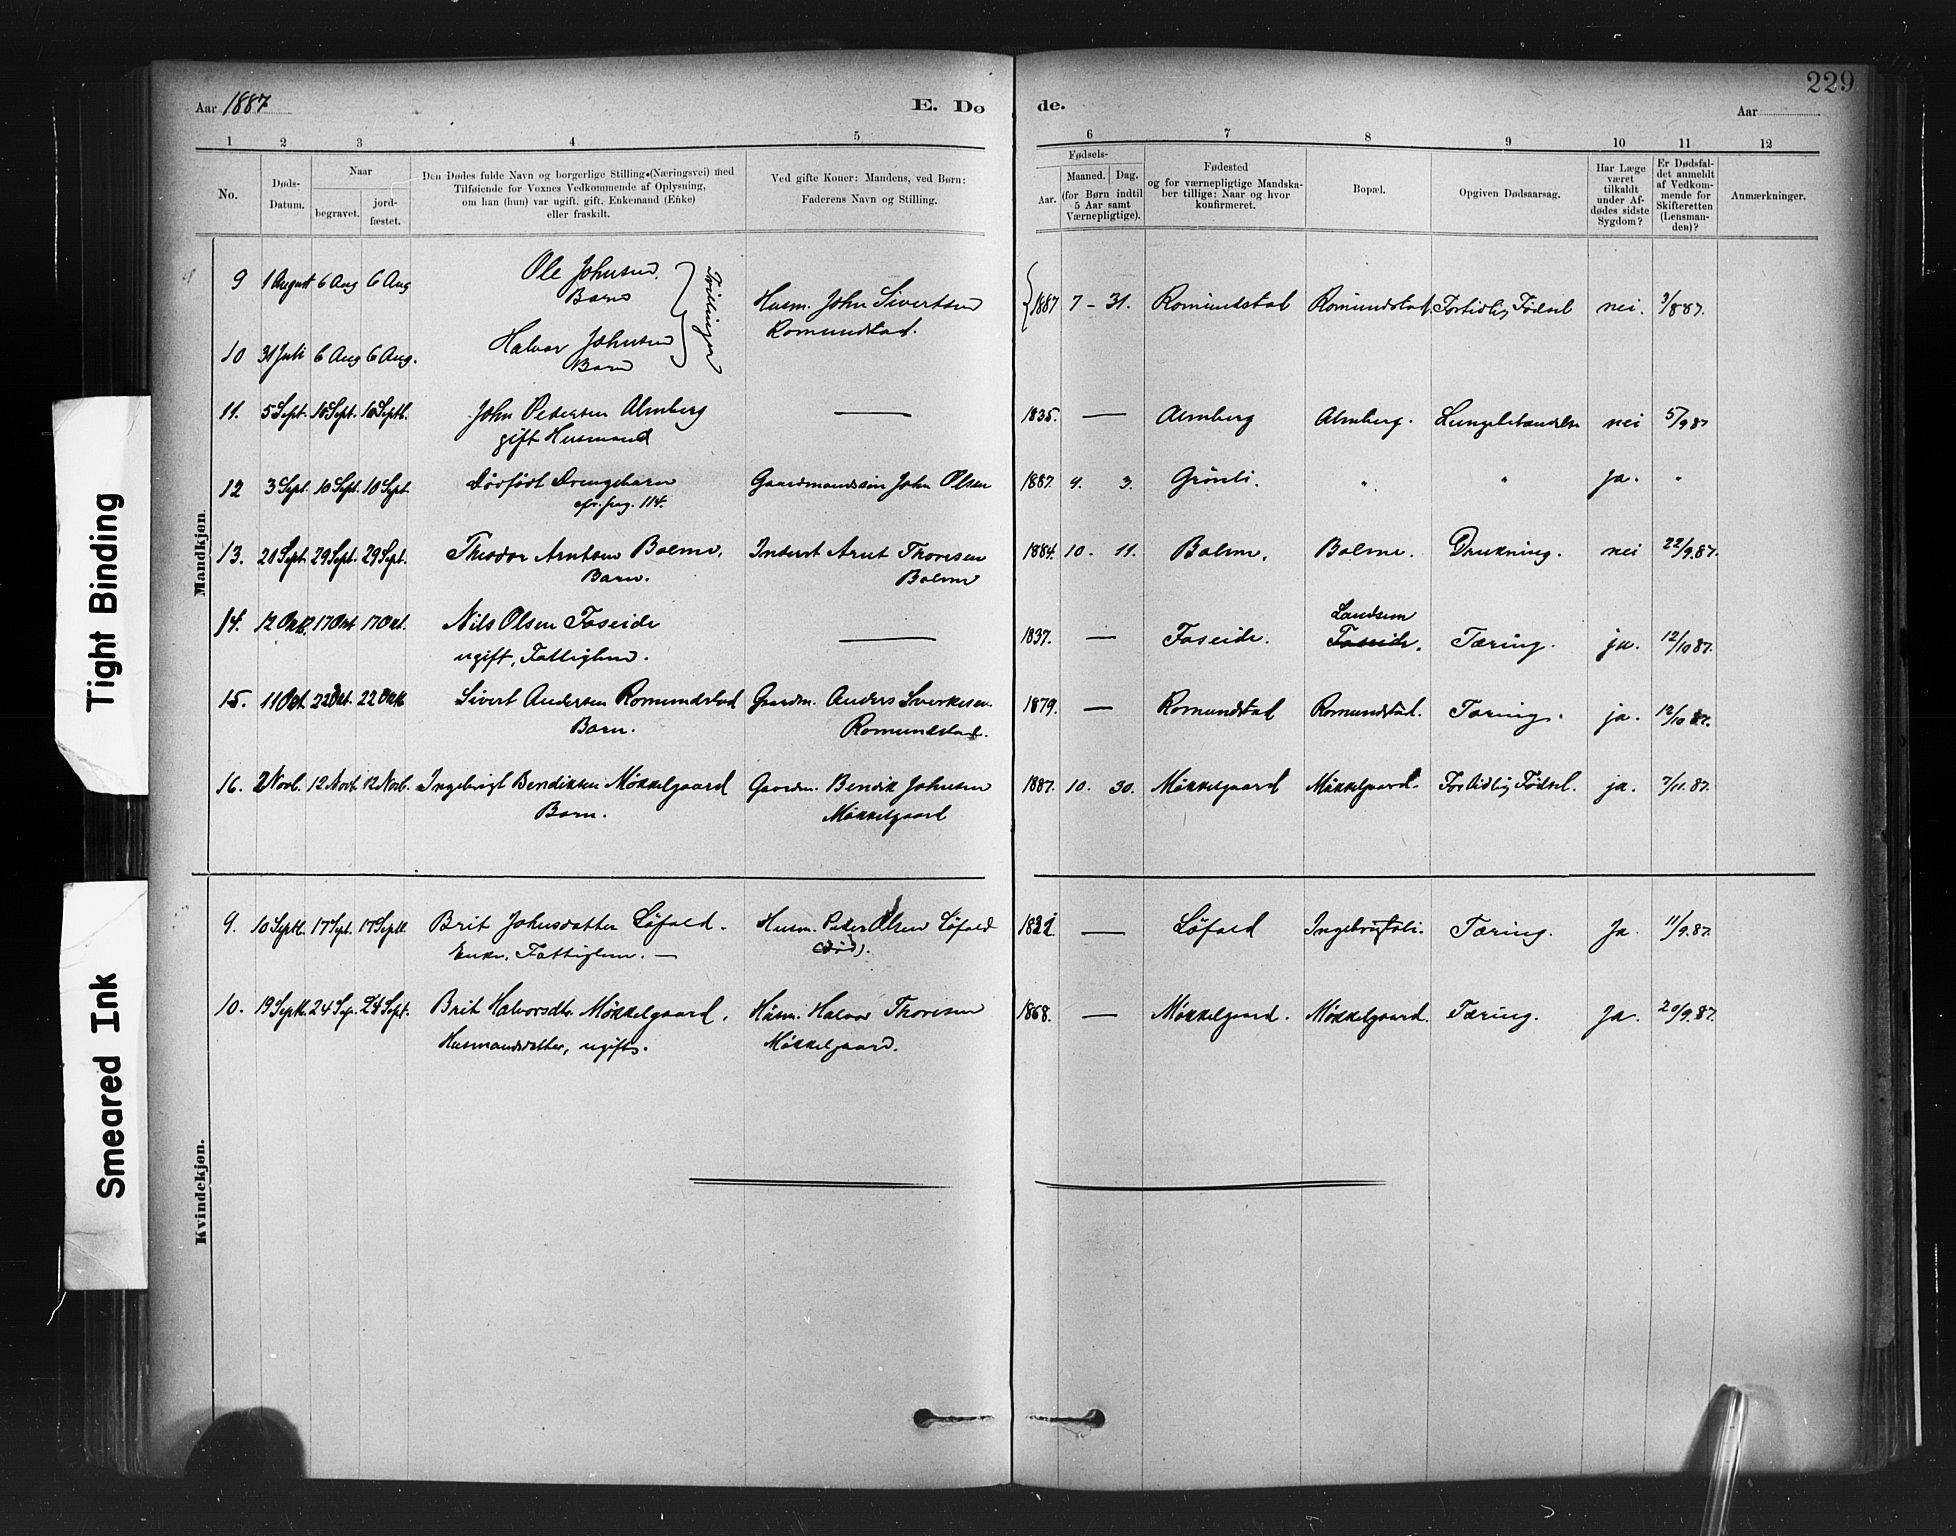 229
Aar 1887 E. Dø de. Aar
1 2 3 4 5 6 7 8 9 10 11 12
No. Døds-Datum. Naar begravet. jordfæstet. Den Dødes fulde Navn og borgerlige Stilling (Næringsvei) med Tilføiende for Voxnes Vedkommende af Oplysning, om han (hun) var ugift, gift, Enkemand (Enke) eller fraskilt. Ved gifte Koner: Mandens, ved Børn: Faderens Navn og Stilling. Fødsels- Aar. Maaned. Dag. (for Børn indtil 5 Aar samt Værnepligtige). Fødested og for værnepligtige Mandskaber tillige: Naar og hvor konfirmeret. Bopæl. Opgiven Dødsaarsag. Har Læge været tilkaldt under Afdødes sidste Sygdom? Er Dødsfaldet anmeldt af Vedkommende for Skifteretten (Lensmanden)? Anmærkninger.
Mandkjøn
9 1 August 6 Aug 6 Aug Ole Johnsen. Barn Tvillinger Husm. John Sivertsen Romundstad. 1887 7 - 31. Romundstad Romundstad. Fortidlig Fødsel nei. 3/8 87.
10 31 Juli 6 Aug 6 Aug. Halvor Johnsen Barn
11. 5 Sept. 10 Sept. 10 Septb. John Pedersen Almberg — 1835. — Almberg Almberg. Lungebetændelse nei 5/9 87
gift Husmand
12 3 Sept. 10 Sept. 10 Sept. Dødfødt Drengebarn Gaardmandssøn John Olsen 1887. 9. 3. Grønli. " " Ja. "
cfr. pag. 114.
13. 21 Sept. 29 Sept. 29 Sept. Theodor Arntsen Bolme. Inderst Arnt Thoresen 1884. 10. 11. Bolme. Bolme. Drukning. nei 22/9.87.
Barn. Bolme
14. 12 Okt. 17 Okt 17 Okt. Nils Olsen Foseide — 1837. — Foseide. Landsem Foseide. Tæring. ja. 12/10 87.
ugift, Fattiglem.
15. 11 Okt. 22 Okt. 22 Okt. Sivert Andersen Romundstad Gaardm. Anders Sverkesen 1879. — Romundstad Romundstad. Tæring. ja. 12/10 87.
Barn. Romundstad.
16. 2 Novb. 12 Novb. 12 Novb. Ingebrigt Bendiksen Møkkelgaard Gaardm. Bendik Johnsen 1887. 10. 30. Møkkelgaard Møkkelgaard. Fortidlig Fødsel. ja. 7/11.87.
Barn. Møkkelgaard
Kvindekjøn.
9. 10 Septb. 17 Sept. 17 Septb. Brit Johnsdatter Løfald. Husm. Peder Olsen Løfald — Løfald Ingebrigtsli. Tæring. Ja. 11/9.87.
Enke, Fattiglem. — (død).
10. 19 Septb. 24 Sep. 24 Sept. Brit Halvorsdtr. Møkkelgaard. Husm. Halvor Thoresen 1868. — Møkkelgaard. Møkkelgaard. Tæring. Ja. 20/9.87.
Husmandsdatter, ugift. Møkkelgaard.
Tight Binding
Smeared Ink